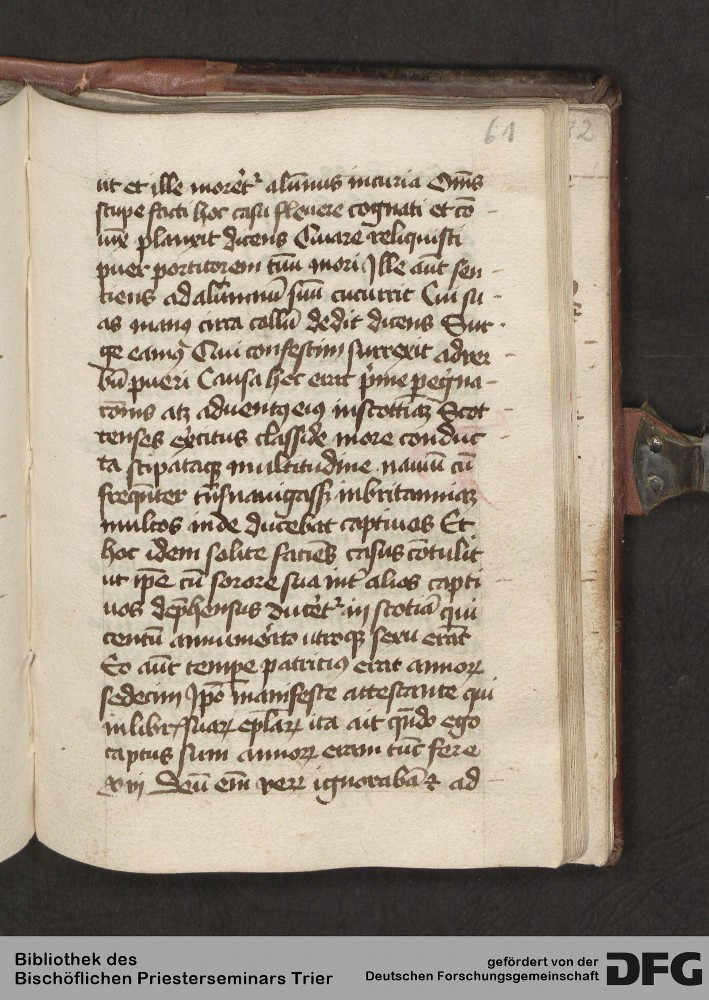 61
ut et ille morēt᷑ alūmus incuria Om̄s
stupefacti hoc casu fleuere cognati et cō
iux planxit dicens Quare reliquisti
puer portitorem tuū mori Ille aūt sen
tiens ad alūmnū suū cucurrit Cui su
as manꝰ circa collū dedit dicens Sur
ge eamꝰ Qui confestim surrexit ad ver
bū pueri Causa hec erat p̄me peḡna
tōnis atqꝫ aduentꝰ eiꝰ in scottiaꝫ Scot
tenses exc̄itus classi de more conduc
ta stipataqꝫ multitudine nauiū cū
freqn̄ter tn̄snauigassꝫ in britanniaꝫ
multos inde ducebat captiuos Et
hoc idem solite faciēs casus cōtulit
ut ip̄e cū sorore sua int̄ alios capti
uos dep̄hensus ducēt᷑ in scotiā qui
centū annumerō utroqꝫ sexu erāt
Eo aūt tempe patritiꝰ erat annoꝝ
sedecim Ip̄o manifeste attestante qui
in libr̄ suaꝝ ep̄laꝝ ita ait qn̄do ego
captus sum annoꝝ eram tūc fere
xvi Deū em̄ veꝝ ignorabā ⁊ ad
Bibliothek des
Bischöflichen Priesterseminars Trier
gefördert von der
Deutschen Forschungsgemeinschaft
DFG